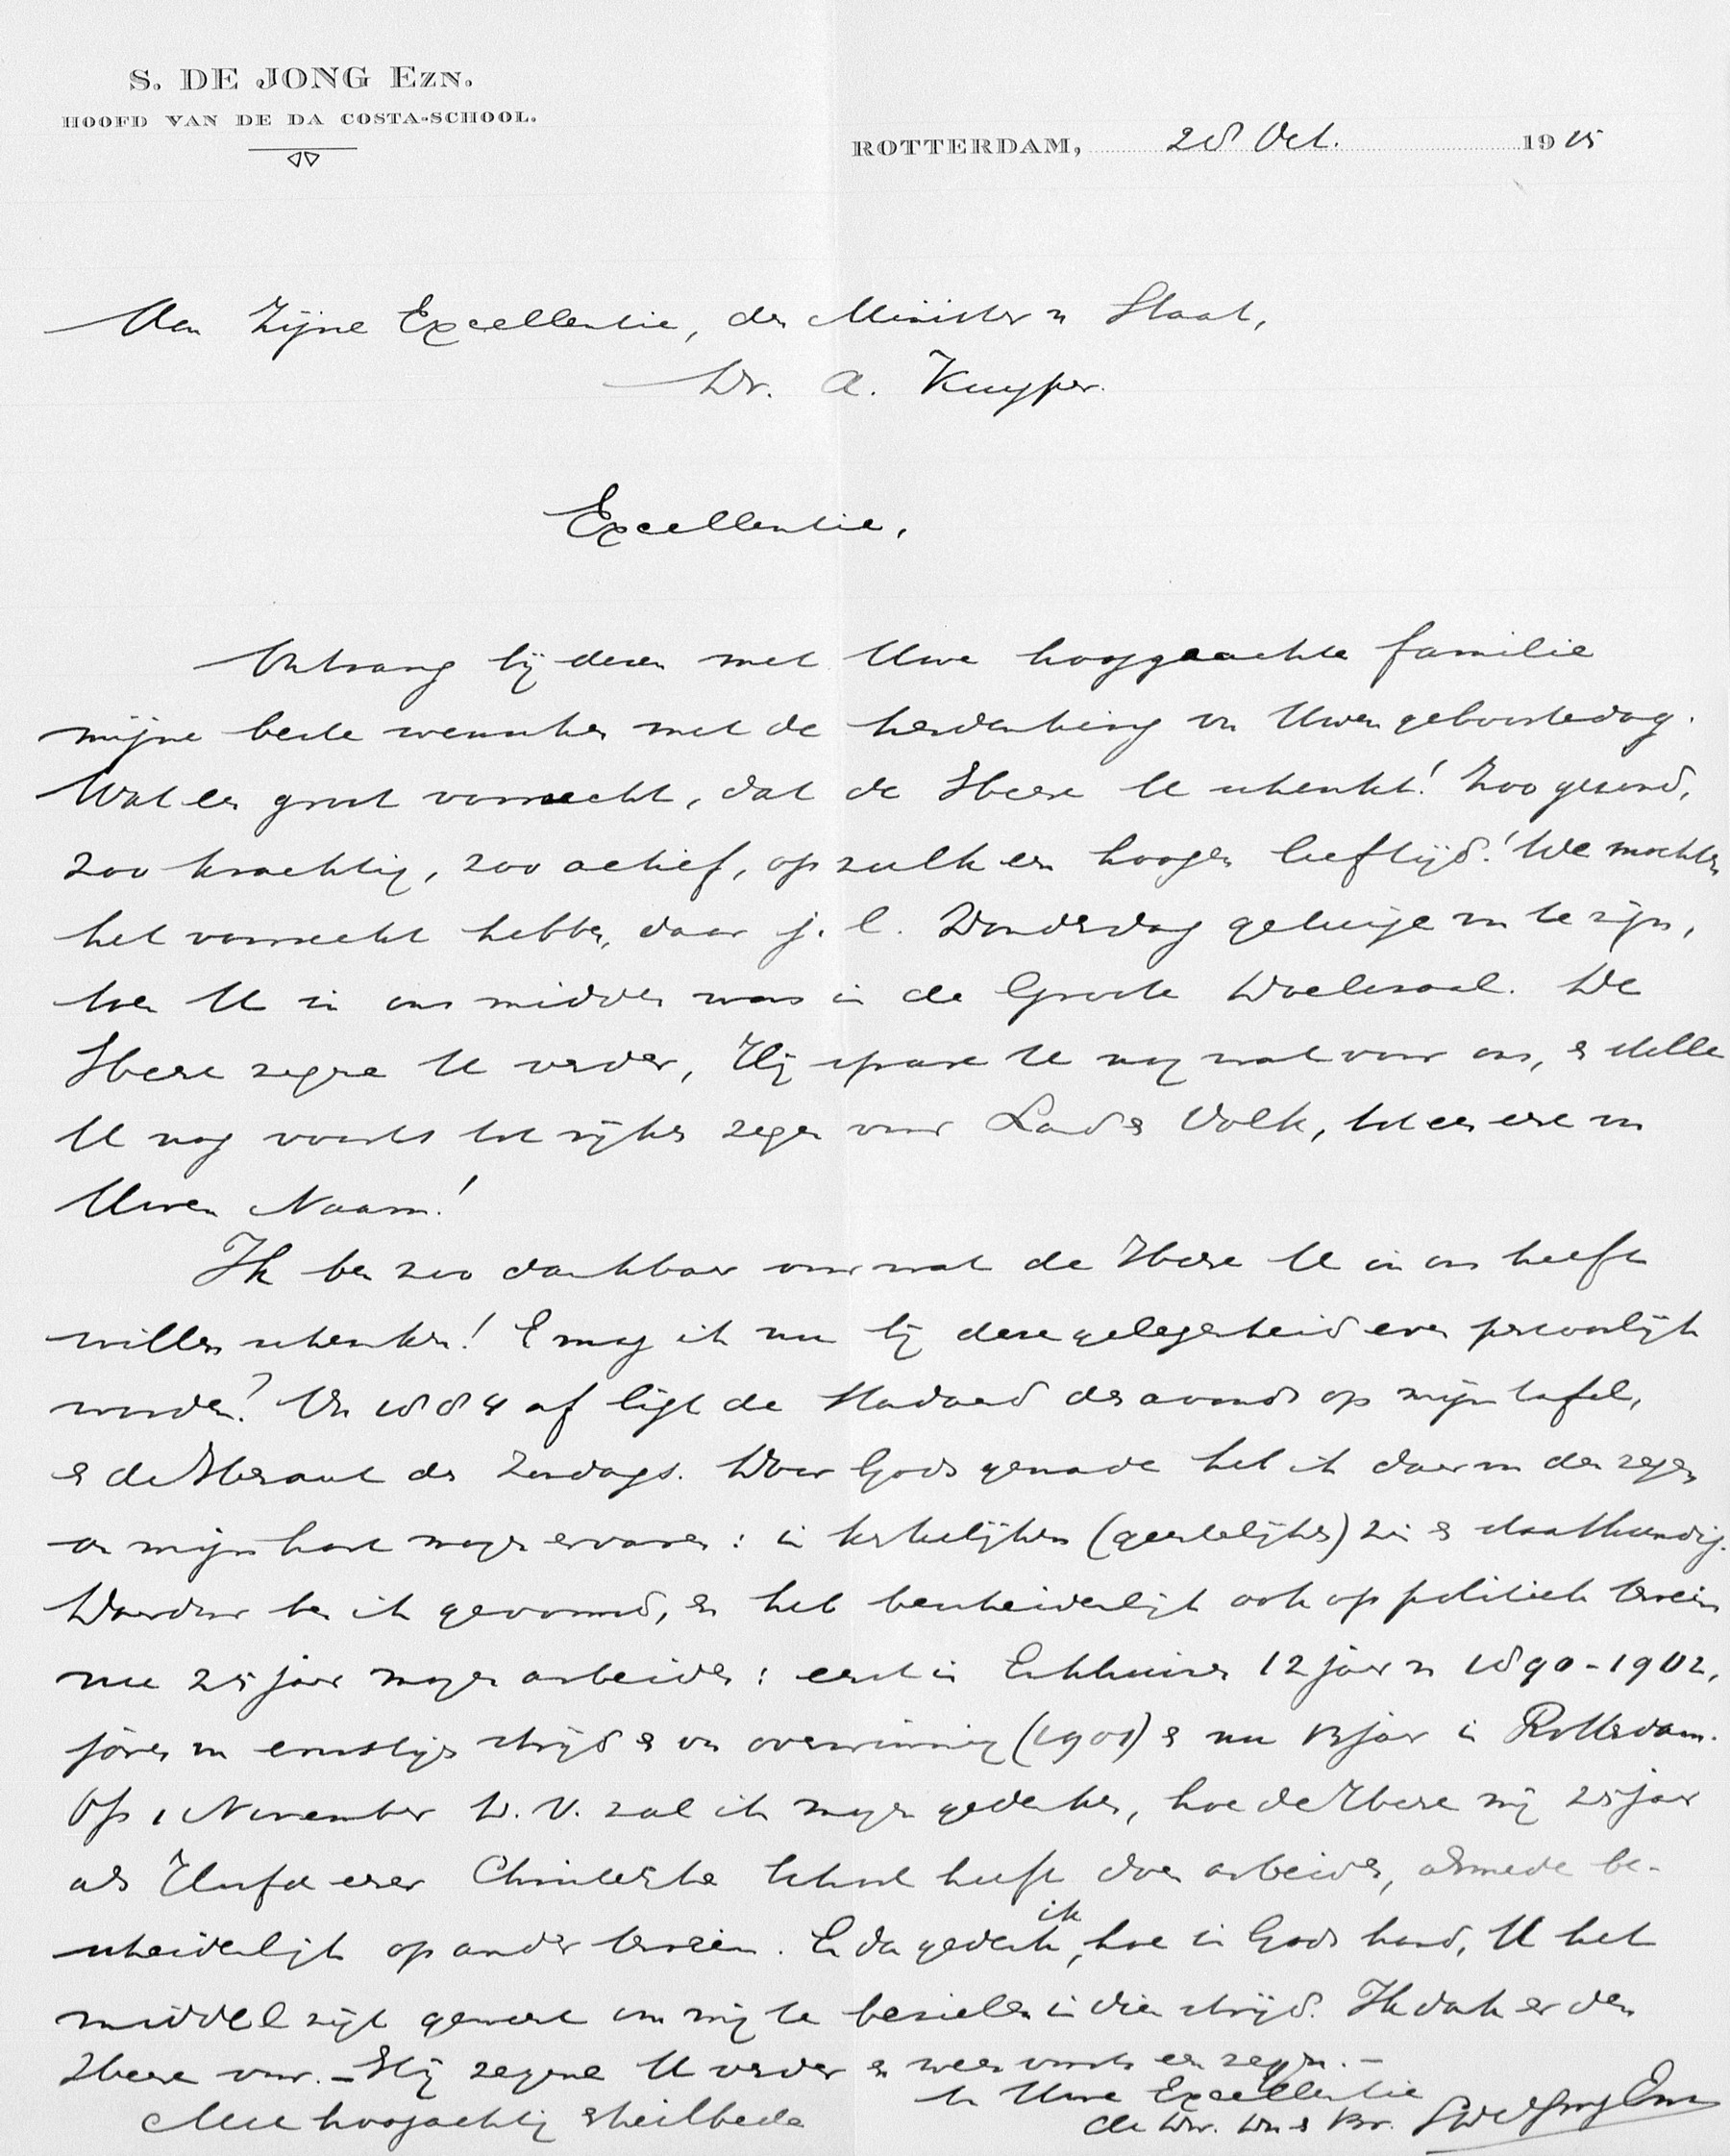 S. DE JONG EZN.
HOOFD VAN DE DA COSTA-SCHOOL.
ROTTERDAM, 28 Oct. 1915
Aan Zijne Excellentie, den Minister v. Staat,
Dr. A. Kuyper.
Excellentie,
Ontvang bij dezen met Uwe hooggeachte familie
mijne beste wenschen met de herdenking van Uwen geboortedag.
Wat een groot voorrecht, dat de Heere U schenkt! Zoo gezond,
zoo krachtig, zoo actief, op zulk een hoogen leeftijd! We mochten
het voorrecht hebben, daar j.l. Donderdag getuige van te zijn,
toen U in ons midden was in de Groote Doelezaal. De
Heere zegene U verder, Hij spare U nog wat voor ons, en stelle
U nog voorts tot rijken zegen voor Land en Volk, tot een eere van
Uwen Naam!
Ik ben zoo dankbaar voor wat de Heere U in ons heeft
willen schenken! En mag ik nu bij deze gelegenheid even persoonlijk
worden? Van 1884 af ligt de Standaard des avonds op mijn tafel,
en de Heraut des Zondags. Door Gods genade heb ik daarvan den zegen
aan mijn hart mogen ervaren: in kerkelijken (geestelijken) zin en staatkundig.
Daardoor ben ik gevormd, en heb bescheidenlijk ook op politiek terrein
nu 25 jaar mogen arbeiden: eerst in Enkhuizen 12 jaar v. 1890-1902,
jaren van ernstigen strijd en van overwinning (1901) en nu 13 jaar in Rotterdam.
Op 1 November D.V. zal ik mogen gedenken, hoe de Heere mij 25 jaar
als Hoofd eener Christelijke School heeft doen arbeiden, alsmede be-
scheidenlijk op ander terrein. En dan gedenk ik, hoe in Gods hand, U het
middel zijt geweest om mij te bezielen in dien strijd. Ik dank er den
Heere voor. - Hij zegene U verder en weer voorts een zegen. -
Met hoogachting en heilbede
Uwe Excellentie
de Dw. Dn. en Br. S de Jong Ezn